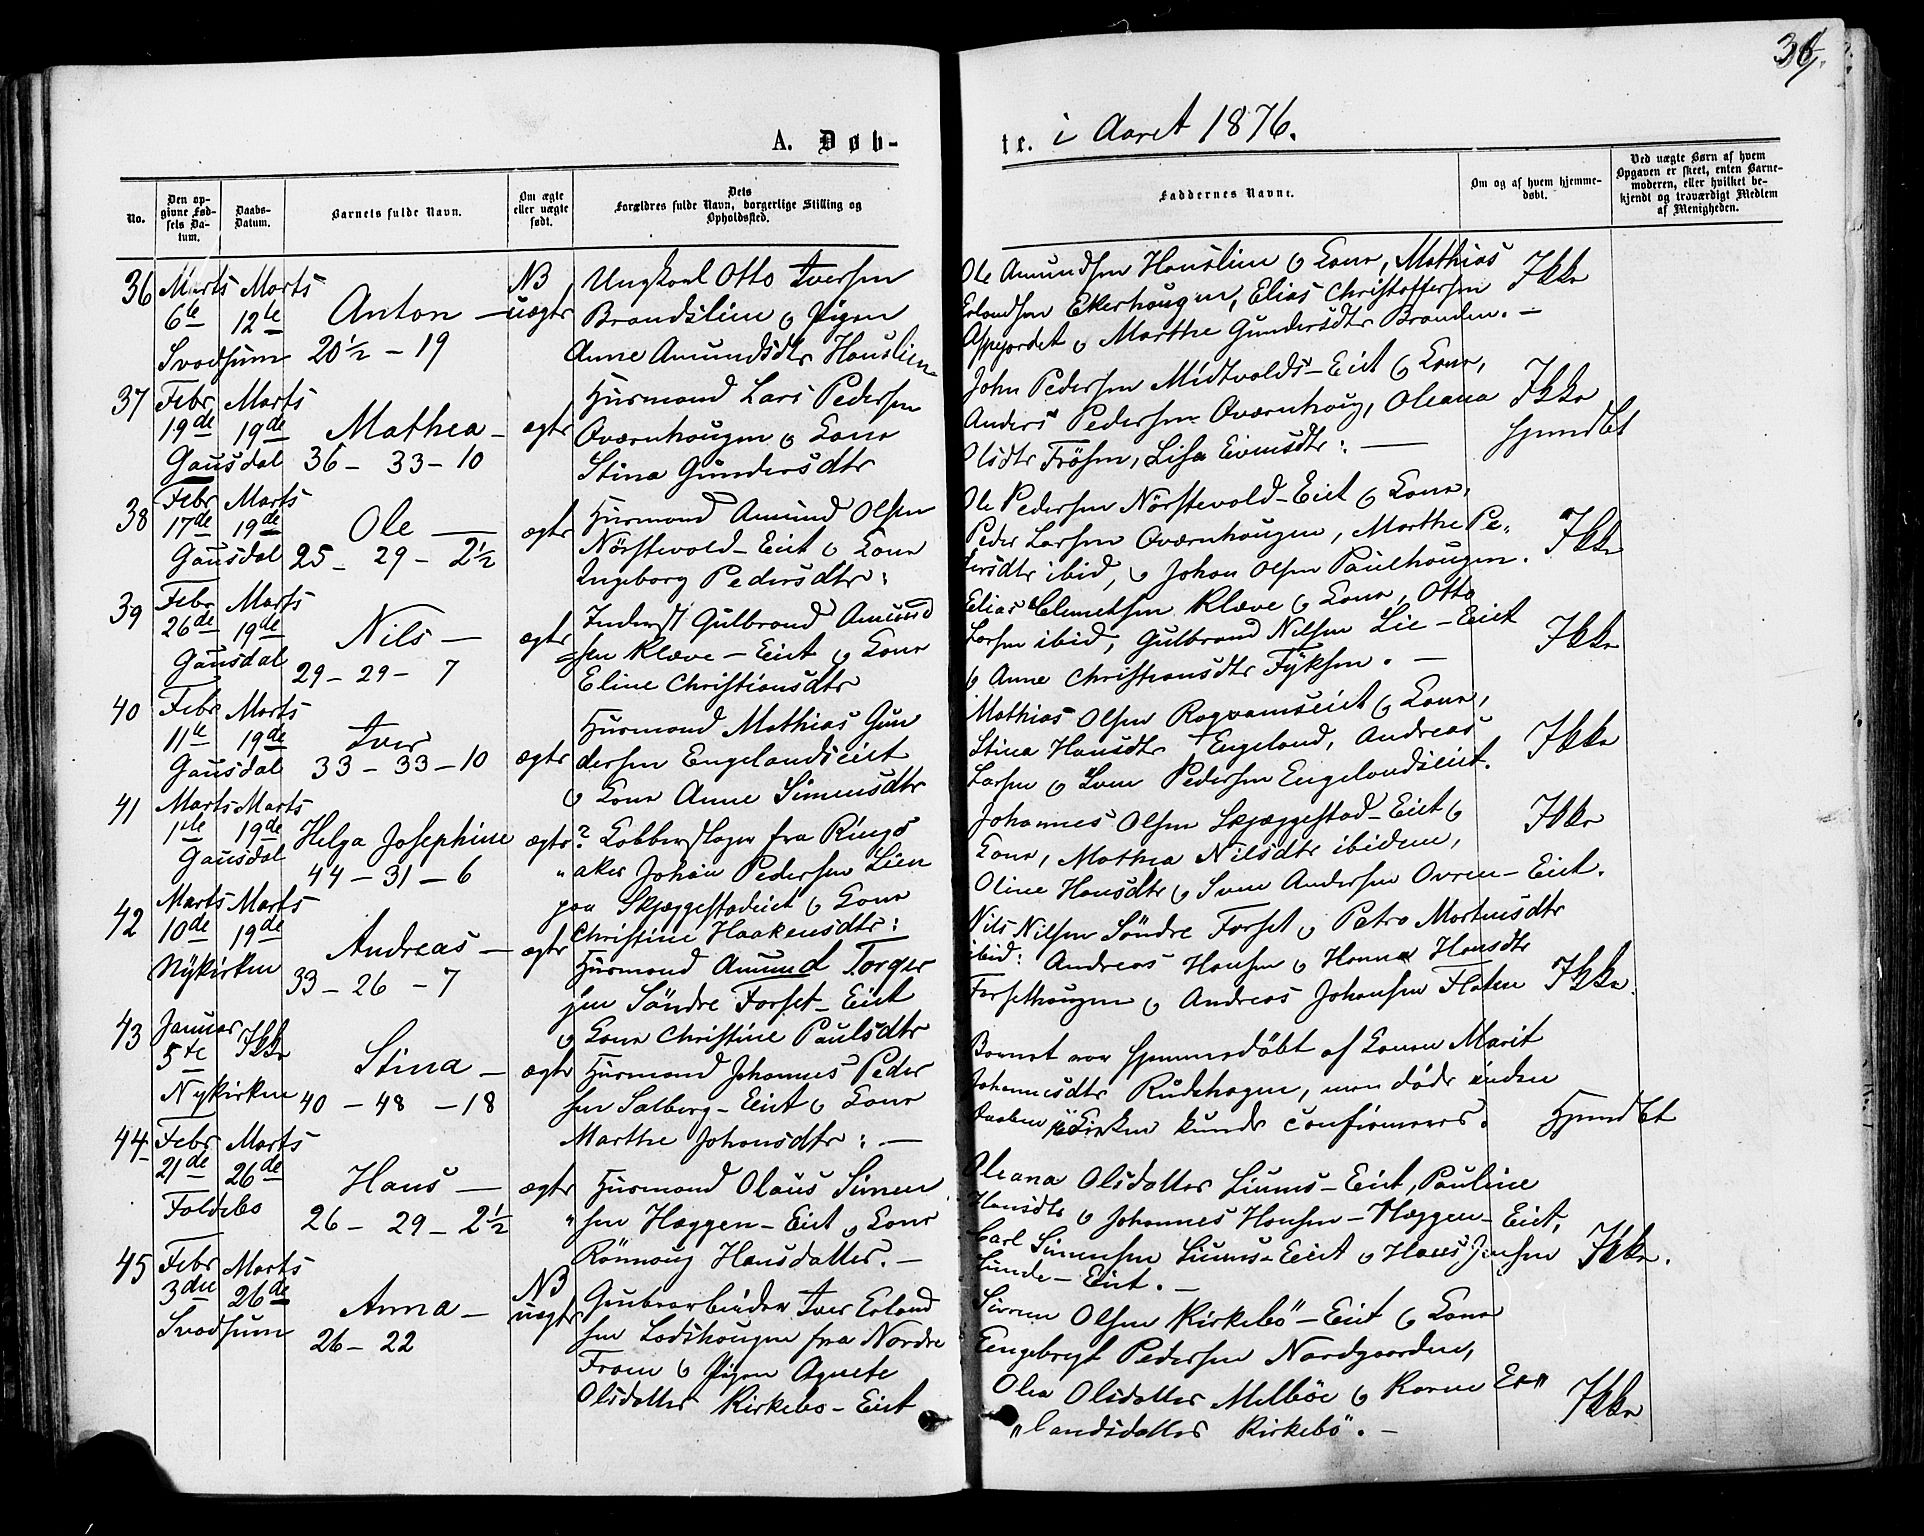 36
A. Døb-
te. i Aaret 1876.
No.
Den op-
givne Fød-
sels Da-
tum.
Daabs-
Datum.
Barnets fulde Navn.
Om ægte
eller uægte
født.
Dets
Forældres fulde Navn, borgerlige Stilling og
Opholdssted.
Faddernes Navne.
Om og af hvem hjemme-
døbt.
Ved uægte Børn af hvem
Opgaven er skeet, enten Barne-
moderen, eller hvilket be-
kjendt og troværdigt Medlem
af Menigheden.
36 Marts 6te Marts 12te
Svadsum
Anton
20½ – 19
NB
uægte
Ungkarl Otto Iversen
Brandslien o Pigen
Anne Amundsdtr Hauslien
Ole Amundsen Hauslien o Kone, Mathias
Erlandsen Ekerhougen, Elias Christoffersen
o Marthe Gundersdtr Branden. –
Ikke
37 Febr 19de Marts 19de
Gausdal
Mathea –
36 – 33 – 10
ægte
Husmand Lars Pedersen
Qværnhougen o Kone
Stina Gundersdtr
John Pedersen Midtvolds-Eiet o Kone,
Anders Pedersen Qværnhoug, Oleana
Olsdtr Frösen, Lisa Evensdtr: –
Ikke
hjmdbt
38 Febr 17de Marts 19de
Gausdal
Ole –
25 – 29 – 2½
ægte
Husmand Amund Olsen
Nörstevold-Eiet o Kone
Ingeborg Pedersdtr:
Ole Pedersen Nörstevold-Eiet o Kone,
Peder Larsen Qværnhougen, Marthe Pe-
dersdtr ibid, o Johan Olsen Paulhougen.
Ikke
39 Febr 26de Marts 19de
Gausdal
Nils –
29 – 29 – 7
ægte
Inderst Gulbrand Amund
sen Klæve-Eiet o Kone
Eline Christiansdtr
Elias Clemetsen Klæve o Kone, Otto
Larsen ibid, Gulbrand Nilsen Lie-Eiet
o Anne Christiansdtr Fyksen. –
Ikke
40 Febr 11te Marts 19de
Gausdal
Iver
33 – 33 – 10
ægte
Husmand Mathias Gun
dersen Engelandseiet
o Kone Anne Simensdtr
Mathias Olsen Rogvamseiet o Kone,
Stina Hansdtr Engeland, Andreas
Larsen o Sven Pedersen Engelandseiet.
Ikke
41 Marts 1ste Marts 19de
Gausdal
Helga Josephine
44 – 31 – 6
ægte
? Kobberslager fra Rings
aker Johan Pedersen Lien
paa Skjæggestadeiet o Kone
Christine Haakensdtr:
Johannes Olsen Skjæggestad-Eiet o
Kone, Mathea Nilsdtr ibidem,
Oline Hansdtr o Sven Andersen Ovren-Eiet.
Ikke
42 Marts 10de Marts 19de
Nykirken
Andreas –
33 – 26 – 7
ægte
Husmand Amund Torger
sen Söndre Forset-Eiet
o Kone Christine Paulsdtr
Nils Nilsen Söndre Forset o Petra Martinsdtr
ibid: Andreas Hansen o Hanna Hansdtr
Forsethougen o Andreas Johansen Flaten
Ikke.
43 Januar 5te Ikke
Nykirken
Stina –
40 – 48 – 18
ægte
Husmand Johannes Peder
sen Salberg-Eiet o Kone
Marthe Johansdtr: –
Barnet var hjemmedöbt af Konen Marit
Johannesdtr Rudshagen, men döde inden
Daaben i Kirken kunde confirmeres.
Hjmdbt
44 Febr 21de Marts 26de
Foldebo
Hans –
26 – 29 – 2½
ægte
Husmand Olaus Simen
sen Hæggen-Eiet o Kone
Rönnoug Hansdatter. –
Oleana Olsdatter Liums-Eiet, Pauline
Hansdtr o Johannes Hansen-Hæggen-Eiet,
Carl Simensen Liums-Eiet o Hans Jensen
Lunde-Eiet. –
Ikke.
45 Febr 3die Marts 26de
Svadsum
Anna –
26 – 22
NB
uægte
Grubearbeider Iver Erland
sen Lodshougen fra Nordre
Fron o Pigen Agnete
Olsdatter Kirkebo-Eiet
Simen Olsen Kirkebö-Eiet o Kone
Engebregt Pedersen Nordgaarden,
Olea Olsdatter Melböe o Karen Er-
landsdatter Kirkebö. –
Ikke